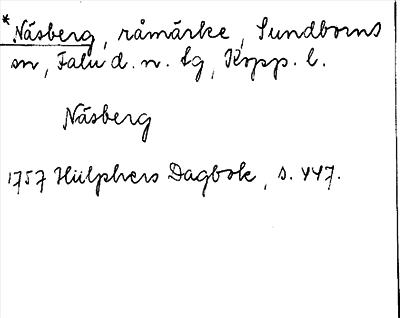 * Näsberg, råmärke, Sundborns
sn, Falu d. n. tg, Kopp. l.
Näsberg
1757 Hülphers Dagbok, s. 447.